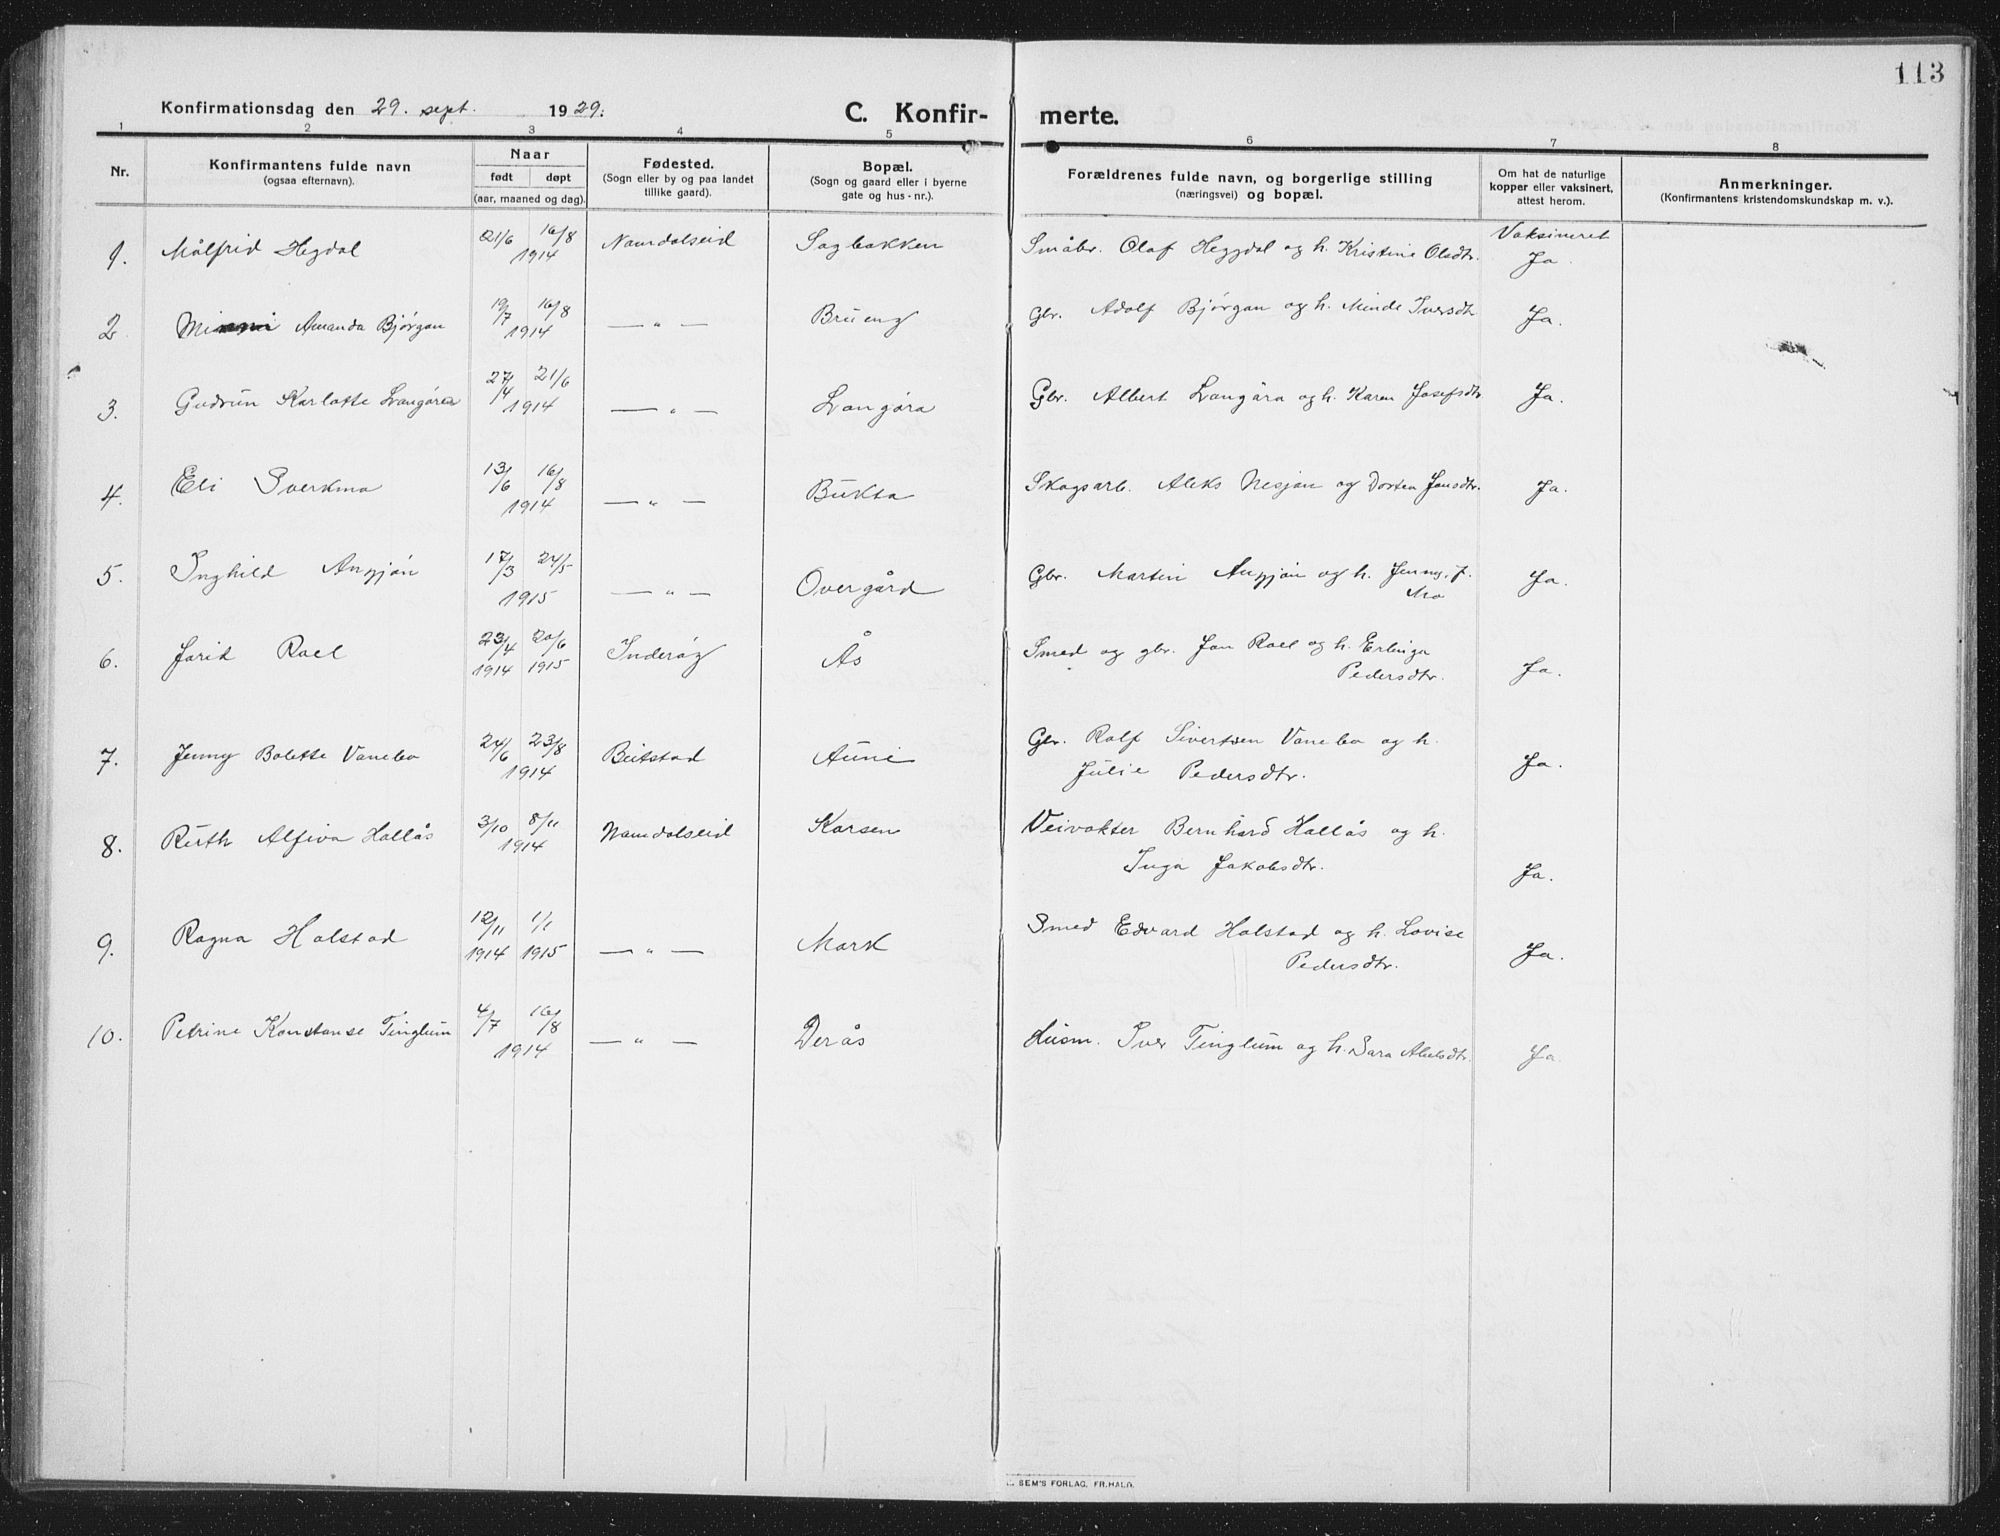 113
Konfirmationsdag den 29. sept. 1929.
C. Konfir-merte.
1 2 3 4 5 6 7 8
Nr.
Konfirmantens fulde navn
(ogsaa efternavn).
Naar
født døpt
(aar, maaned og dag).
Fødested.
(Sogn eller by og paa landet
tillike gaard).
Bopæl.
(Sogn og gaard eller i byerne
gate og hus-nr.).
Forældrenes fulde navn, og borgerlige stilling
(næringsvei) og bopæl.
Om hat de naturlige
kopper eller vaksinert,
attest herom.
Anmerkninger.
(Konfirmantens kristendomskundskap m. v.).
1. Målfrid Hegdal 21/6 16/8 1914 Namdalseid Sagbakken Småbr. Olaf Heggdal og h. Kristine Olsdtr. Vaksineret Ja.
2. Amanda Bjørgan 19/7 16/8 1914 — " — Brueng Gbr. Adolf Bjørgan og h. Minde Iversdtr. Ja.
3. Gudrun Karlotte Langåra 27/4 21/6 1914 — " — Langåra Gbr. Albert Langåra og h. Karen Josefsdtr. Ja.
4. Eli Sverkmo 13/6 16/8 1914 — " — Bukta Skogsarb. Aleks Nesjan og Dortea Jonsdtr. Ja.
5. Inghild 17/3 24/5 1915 — " — Overgård Gbr. Martin og h. Jenny J.
Mo Ja.
6. Jorid Roel 23/4 1914 20/6 1915 Inderøy Ås Smed og gbr. Jon Roel og h. Erlinga
Pedersdtr. Ja.
7. Jenny Bolette Vanebo 24/6 23/8 1914 Beitstad Aune Gbr. Rolf Sivertsen Vanebo og h.
Julie Pedersdtr. Ja.
8. Ruth Alfiva Hallås 3/10 8/11 1914 Namdalseid Korsen Veivokter Bernhard Hallås og h.
Inga Jakobsdtr. Ja.
9. Ragna Holstad 12/11 1914 1/1 1915 — " — Mork Smed Edvard Holstad og h. Lovise
Pedersdtr. Ja.
10. Petrine Konstanse Tinglum 4/7 16/8 1914 — " — Derås Husm. Iver Tinglum og h. Sara Abelsdtr. Ja
SEM'S FORLAG, FR.HALD.